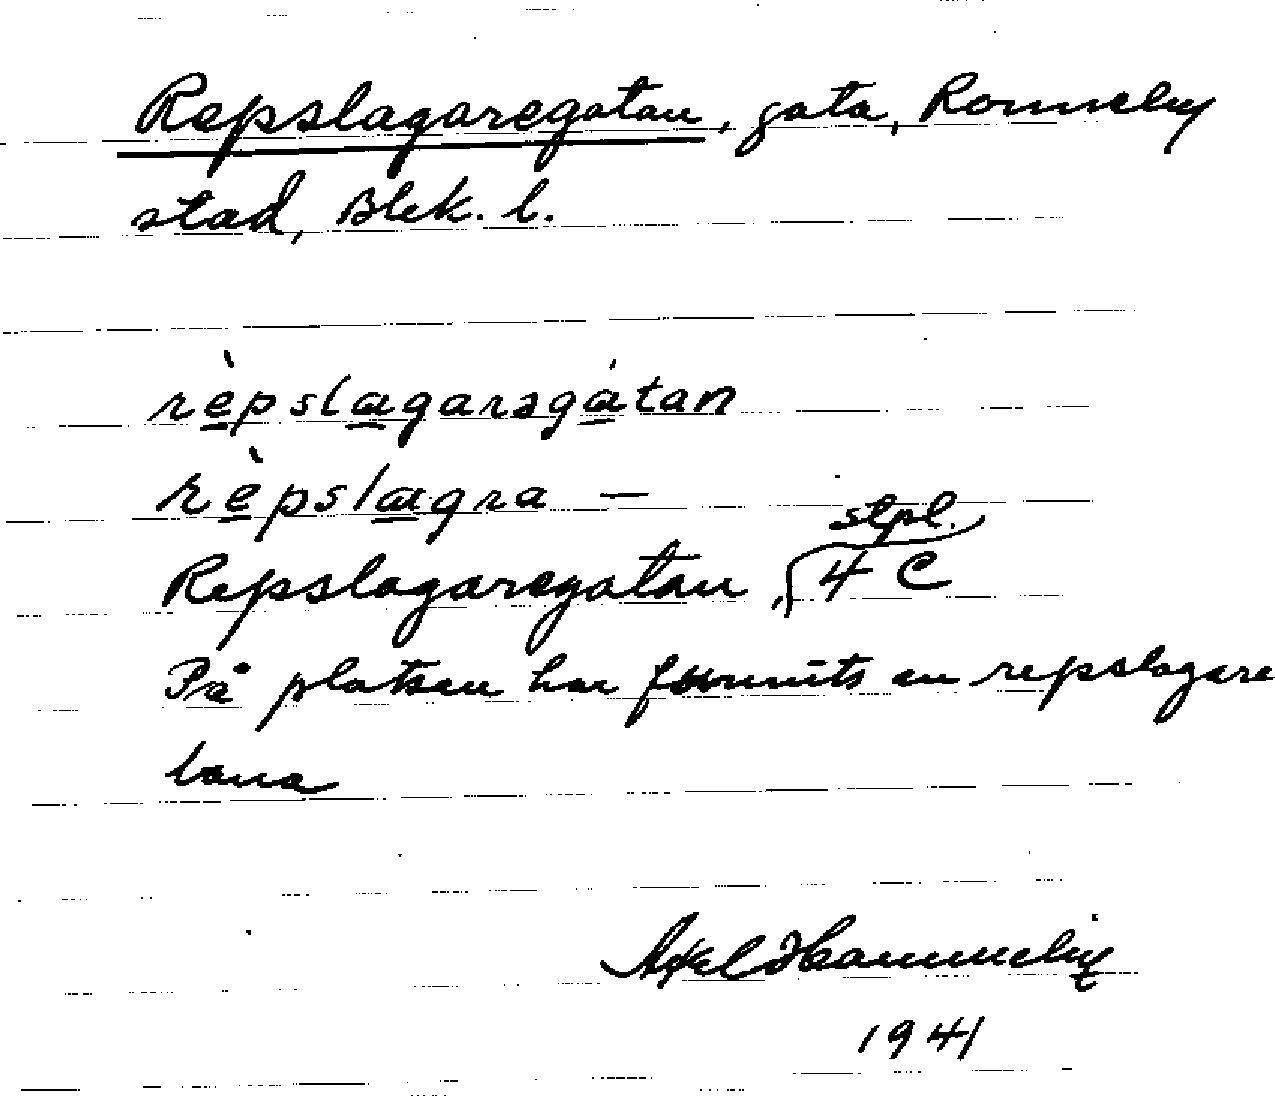 Repslagaregatan, gata, Ronneby
stad, Blek. l.
rèpslagarəgátan
rèpslagra —
stpl.
Repslagaregatan, 4 C
På platsen har funnits en repslagare
bana
Axel
1941